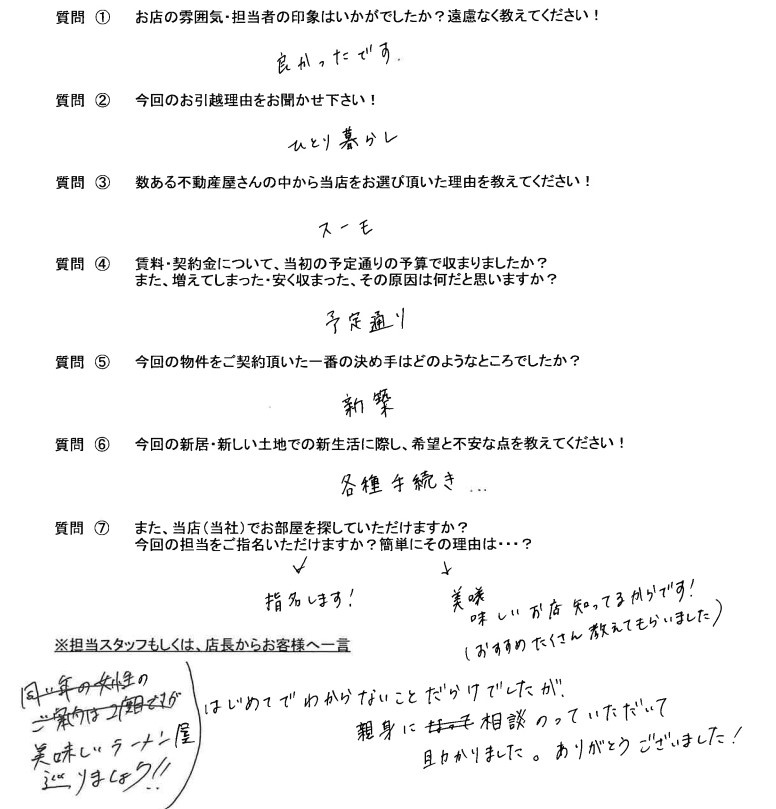 質問 ① お店の雰囲気・担当者の印象はいかがでしたか？遠慮なく教えてください！
良かったです.
質問 ② 今回のお引越理由をお聞かせ下さい！
ひとり暮らし
質問 ③ 数ある不動産屋さんの中から当店をお選び頂いた理由を教えてください！
スーモ
質問 ④ 賃料・契約金について、当初の予定通りの予算で収まりましたか？
また、増えてしまった・安く収まった、その原因は何だと思いますか？
予定通り
質問 ⑤ 今回の物件をご契約頂いた一番の決め手はどのようなところでしたか？
新築
質問 ⑥ 今回の新居・新しい土地での新生活に際し、希望と不安な点を教えてください！
各種手続き...
質問 ⑦ また、当店（当社）でお部屋を探していただけますか？
今回の担当をご指名いただけますか？簡単にその理由は・・・？
指名します！
美味しいお店知ってるからです！
（おすすめたくさん教えてもらいました）
※担当スタッフもしくは、店長からお客様へ一言
同い年の女性の
ご案内は2組目ですが
美味しいラーメン屋
巡りましょう!!
はじめてでわからないことだらけでしたが、
親身に相談のっていただいて
助かりました。ありがとうございました！